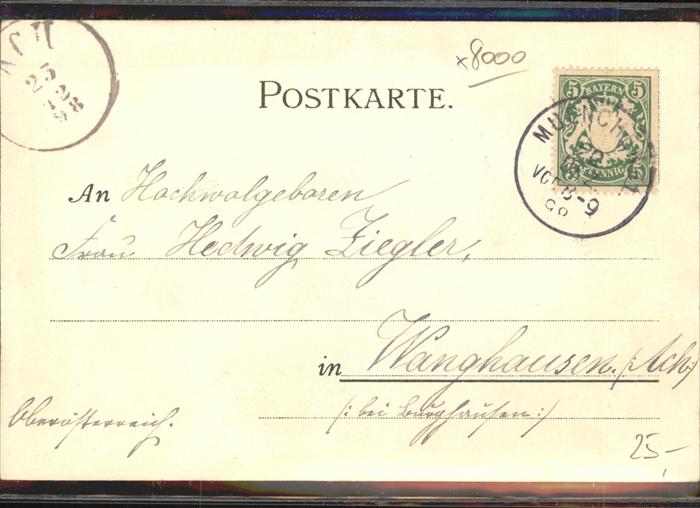 x8000
POSTKARTE.
5 BAYERN 5
5 PFENNIG 5
MUENCHEN
VOR 8-9
98
An Hochwolgeboren
Frau Hedwig Ziegler,
in Wanghausen. (Ach:)
(: bei Burghausen :)
Oberösterreich.
25,-